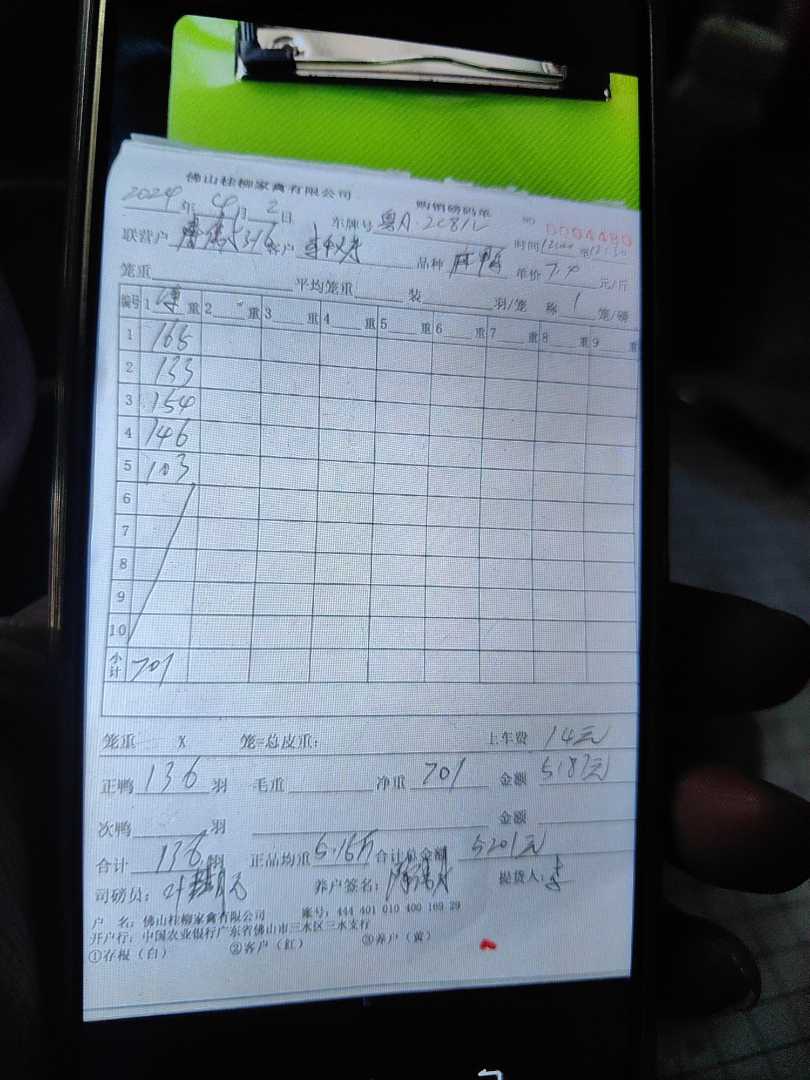 佛山桂柳家禽有限公司 购销磅码单 NO 0004480
2024年 4月 2日 车牌号 粤A·2C81V 时间
联营户 客户 品种 麻鸭 单价 7.4 元/斤
笼重 平均笼重 装 羽/笼 称 1 笼/磅
编号 1 净 重 2 重 3 重 4 重 5 重 6 重 7 重 8 重 9 重
1 165
2 133
3 154
4 146
5 103
6
7
8
9
10
小计 701
笼重 x 笼=总皮重: 上车费 14元
正鸭 136 羽 毛重 净重 701 金额 5187元
次鸭 羽 金额
合计 136 羽 正品均重 5.15斤 合计总金额 5201元
司磅员: 养户签名: 提货人: 李
户 名: 佛山桂柳家禽有限公司 账号: 444 401 010 400 169 29
开户行: 中国农业银行广东省佛山市三水区三水支行
①存根(白) ②客户(红) ③养户(黄)